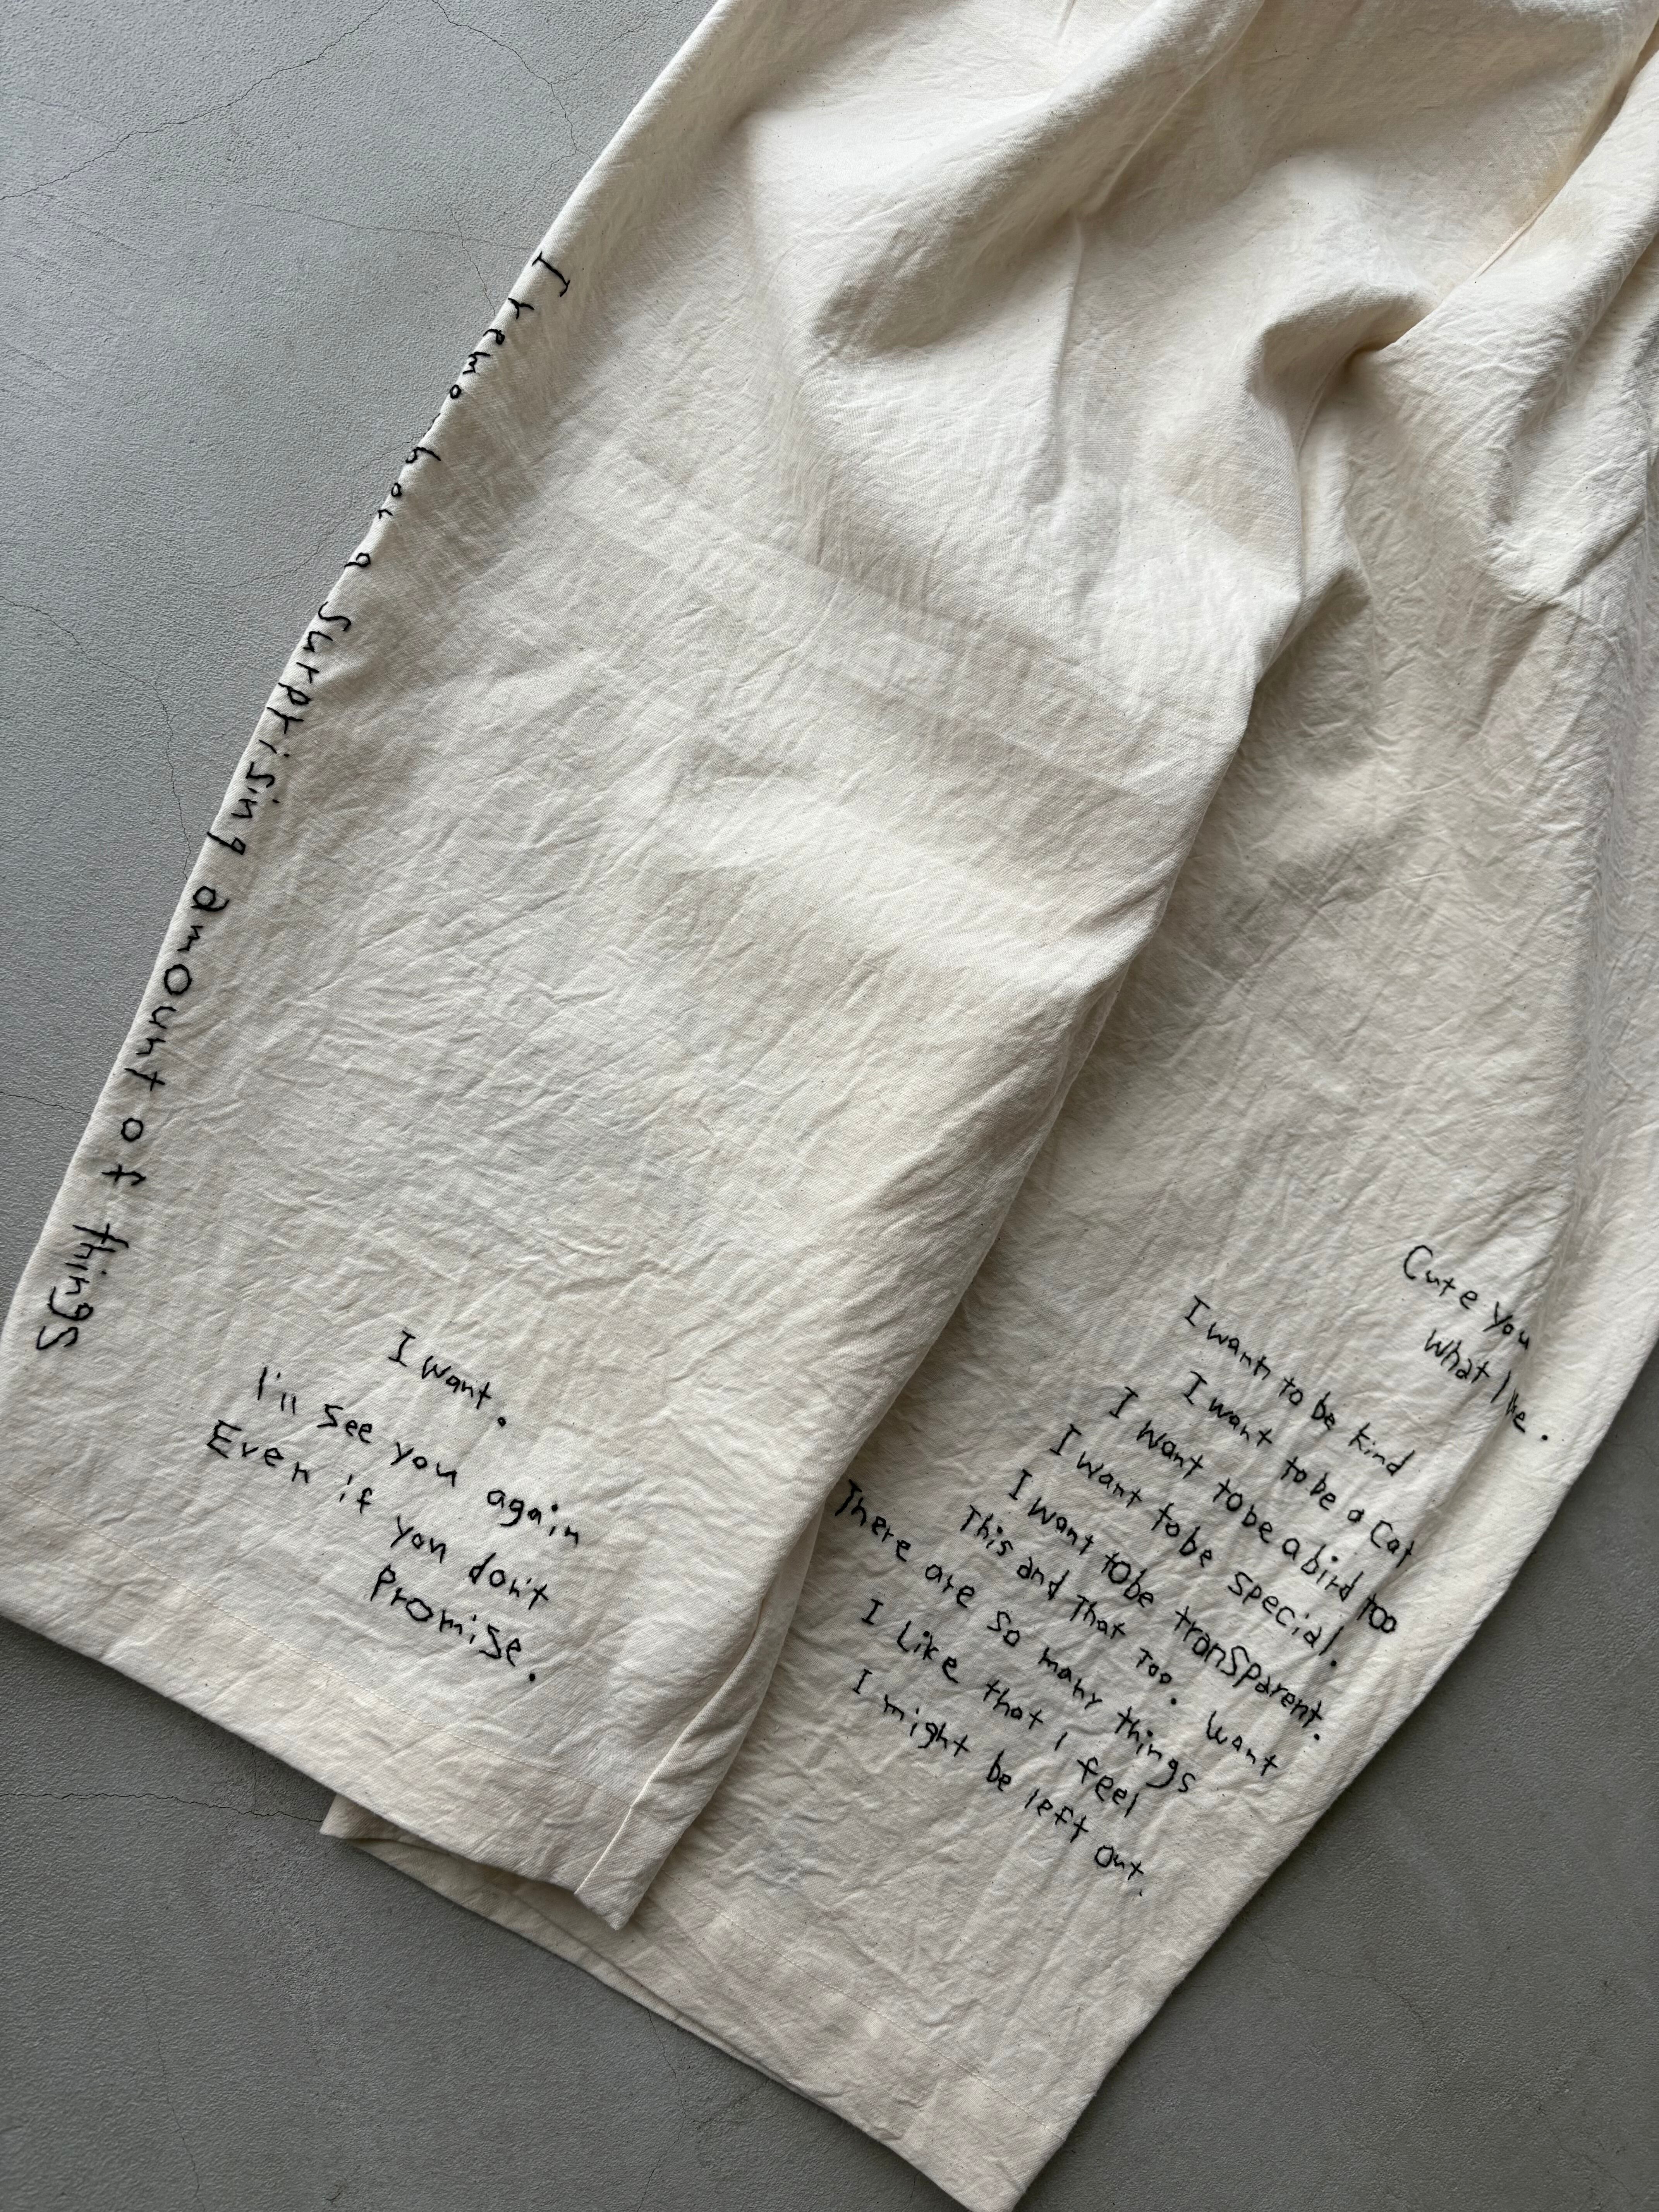 I remember a surprising amount of things
I want.
I'll see you again
Even if you don't
Promise.
Cute you
What I like.
I want to be kind
I want to be a Cat
I want to be a bird too
I want to be special.
I want to be transparent.
This and That Too. Want
There are so many things
I Like that I feel
I might be left Out.